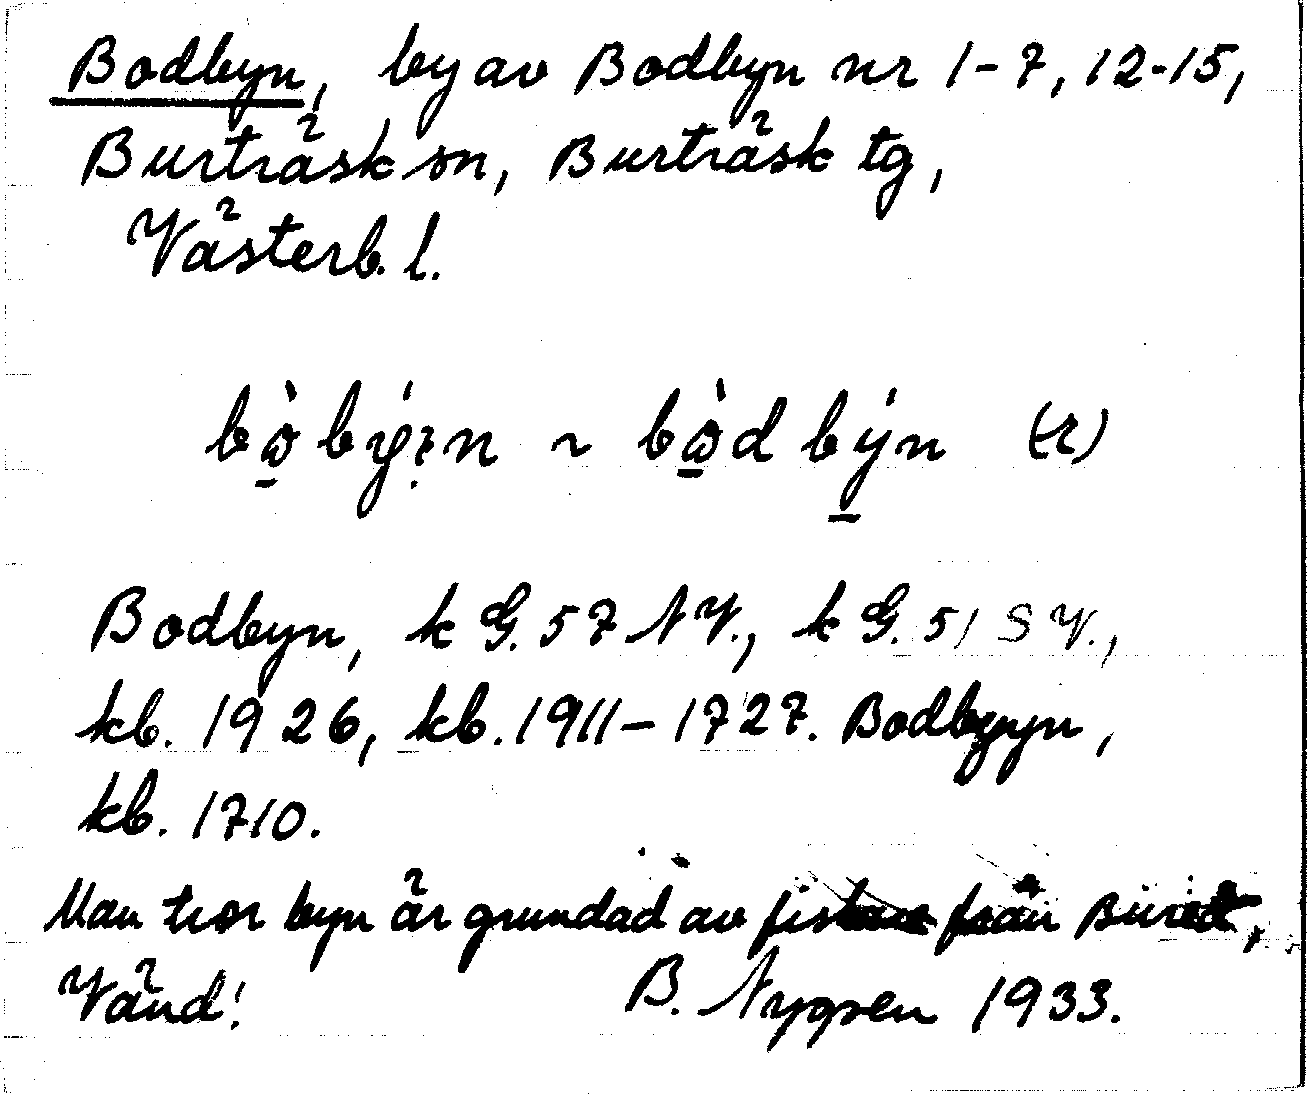 Bodbyn, by av Bodbyn nr 1-7, 12-15,
Burträsk sn, Burträsk tg,
Västerb. l.
bɷ̀býɛn ~ bɷ̀dbýn (-r)
Bodbyn, k G. 57 NV., k G. 51 SV.,
kb. 1926, kb. 1911–1727. Bodbyn,
kb. 1710.
Man tror byn är grundad av fiskare från Bureå,
Vänd! B. Nygren 1933.